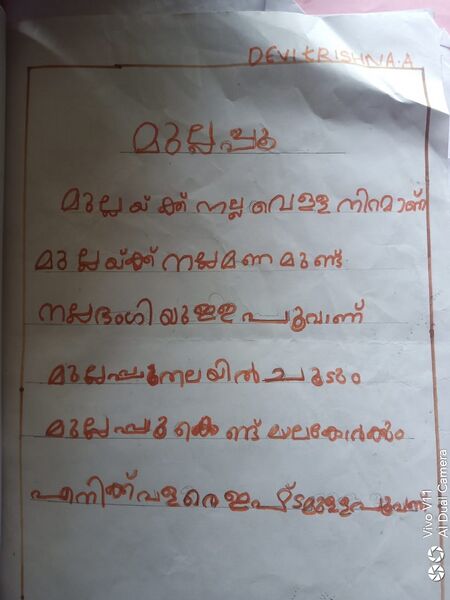 DEVIKRISHNA.A
മുല്ലപ്പൂ
മുല്ലയ്ക്ക് നല്ല വെള്ള നിറമാണ്
മുല്ലയ്ക്ക് നല്ലമണമുണ്ട്
നല്ലഭംഗിയുള്ള പൂവാണ്
മുല്ലപ്പൂതലയിൽ ചൂടും
മുല്ലപ്പൂകൊണ്ട് മാലകോർക്കും
എനിക്ക്വളരെഇഷ്ടമുള്ളപൂവാണ്
Vivo V11
AI Dual Camera